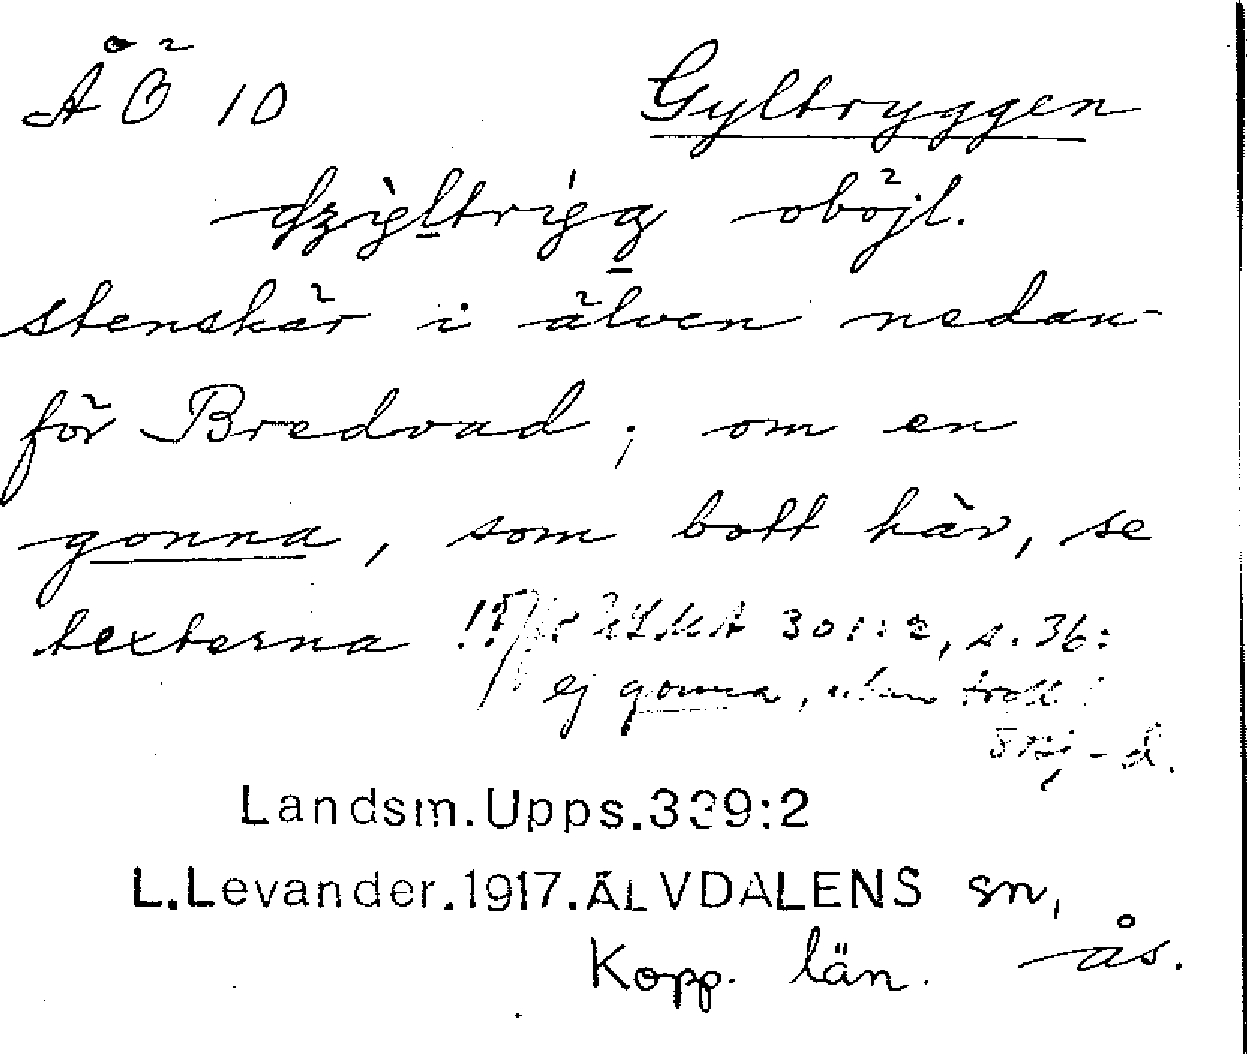 ÅÖ 10 Gyltryggen
dzìl̲trígg̲ oböjl.
stenskär i älven nedan-
för Bredvad; om en
gonna, som bott här, se
texterna !? 301:2, s. 36:
ej gonna, utan troll!
Landsm.Upps.339:2
L.Levander.1917.ÄLVDALENS sn,
Kopp. län. ås.